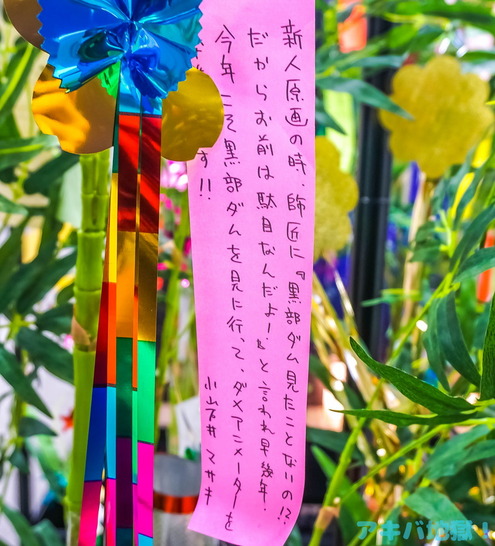 新人原画の時、師匠に『黒部ダム見たことないの!?
だからお前は駄目なんだよー』と言われ早幾年。
今年こそ黒部ダムを見に行って、ダメアニメーターを
す!!
小岩井 マサキ
アキバ地獄!